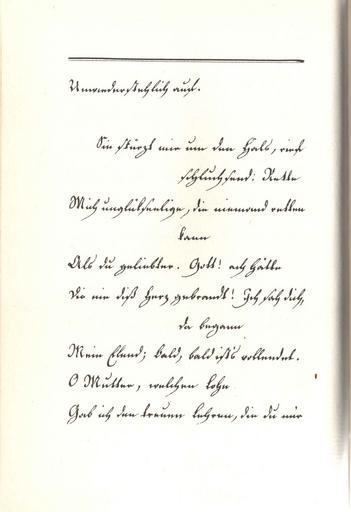 Unwiederstehlich aus.
Sie stürzt mir um den Hals, rief
schluchsend: Rette
Mich unglükseelige, die niemand retten
kann
Als du geliebter. Gott! ach hätte
Die nie diß Herz gebrandt! Ich sah dich,
da begann
Mein Elend; bald, bald ists vollendet.
O Mutter, welchen Lohn
Gab ich den treuen Lehren, die du mir